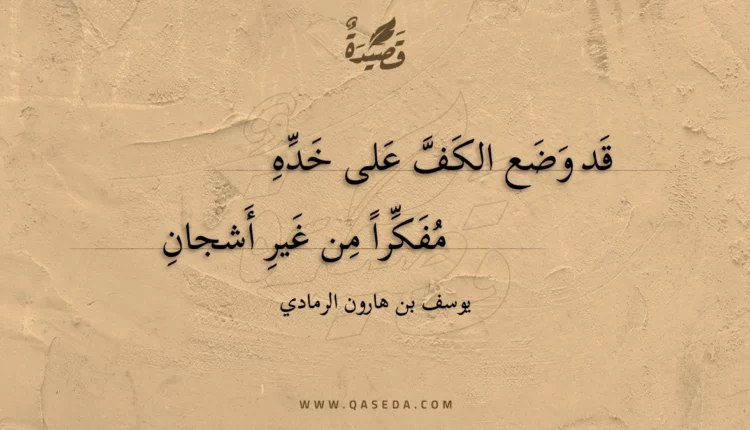 قَصِيدَةٌ
قَد وَضَع الكَفَّ عَلى خَدِّهِ
مُفَكِّراً مِن غَيرِ أَشجانِ
يوسف بن هارون الرمادي
WWW.QASEDA.COM